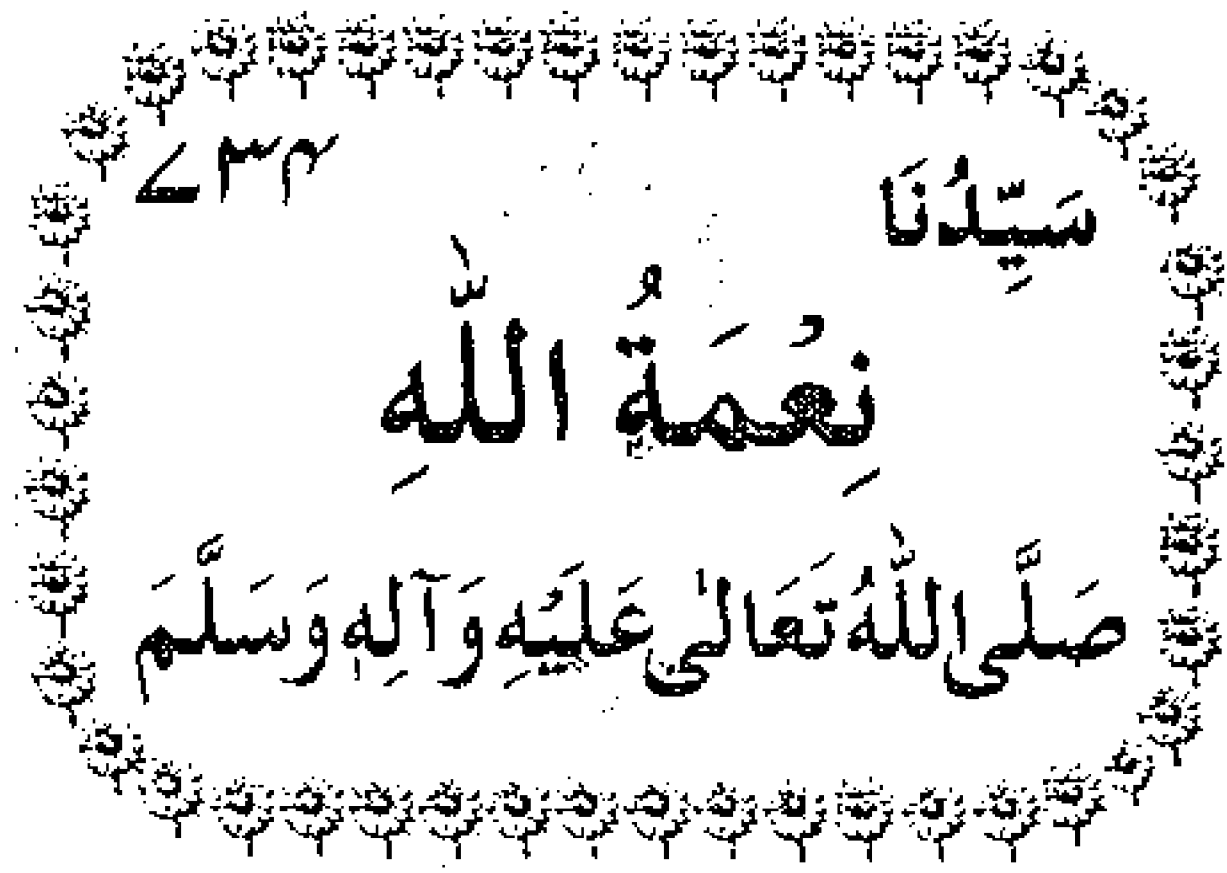 سَيِّدُنَا
نِعْمَةُ اللّٰهِ
صَلَّى اللّٰهُ تَعَالٰى عَلَيْهِ وَآلِهٖ وَسَلَّمَ